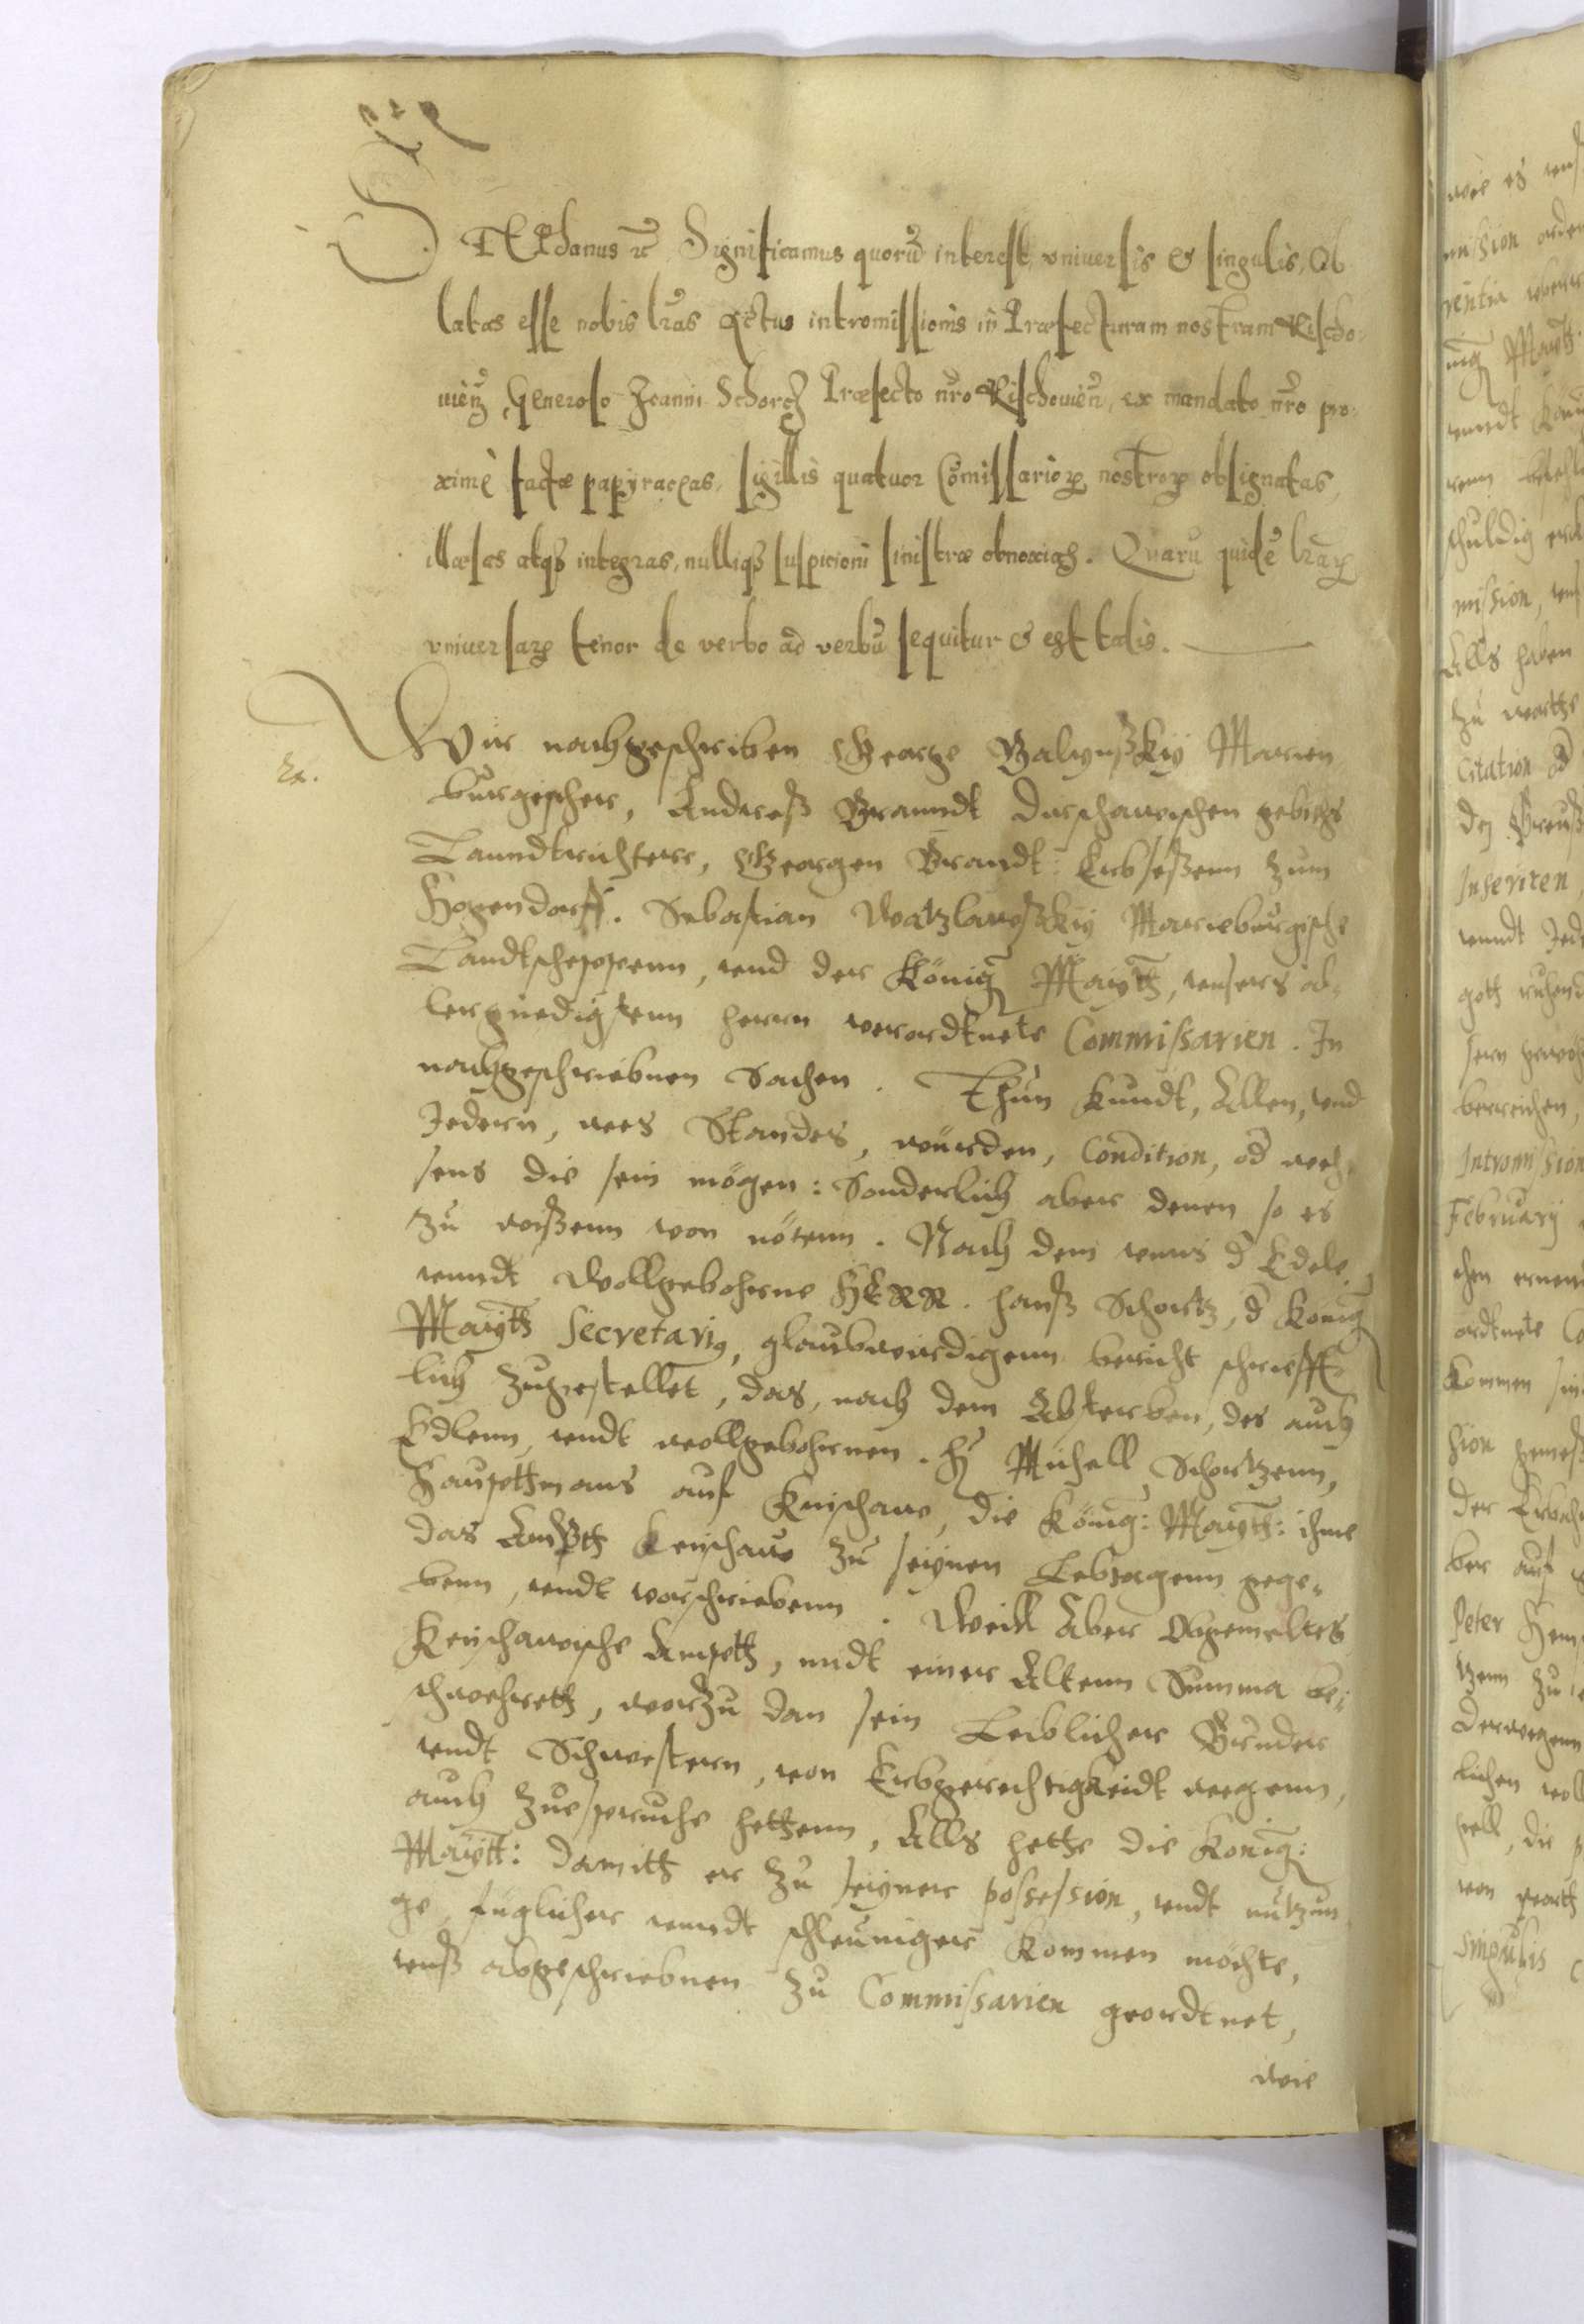 STEPhanus rc Significamus quorū interest, vniuersis & singulis, Ob
latas esse nobis lr̃as Actus intromissionis in Præfecturam nostram Kischo-
uieñ, Generoso Joanni Schorcz Præfecto nr̃o Kischouieñ, ex mandato nr̃o pro-
ximè factæ papyraceas, sigillis quatuor Com̃issarioꝝ nostroꝝ obsignatas,
illæsas atqʒ integras, nulliqʒ suspicioni sinistræ obnoxias. Quarū quidē lr̃aꝝ
vniuersaꝝ tenor de verbo ad verbū sequitur & est talis.
Wir nachgeschriben George Balynsskÿ Marien
burgischer, Andreß Branndt dirschawischen gebiets
Lanndtrichtere, Georgen Brandt: Erbseßenn zum
Hogendorff. Sebastian Watzlawsskÿ Marieburgische
Landtscheppenn, vnd der Königñ Maÿtt, vnsers al-
lergnedigstenn herrn verordtnete Commissarien. In
nachgeschriebnen Sachen. Thun kundt, Allen, vnd
Jedern, wes Standes, würden, Condition, od we-
sens die sein mögen: Sonderlich aber denen so es
zu wißenn von nötenn. Nach dem vnns d Edele
vnndt Wollgebohrne HERR. hanß Schortz, d König
Maÿtt Secretariꝯ, glaubwirdigenn bericht schrifft
lich zugestellet, das, nach dem Absterben, des auch
Edlenn, vndt wollgebohrnen. H Michall Schortzenn,
Haupttmans auf Kyschaw, die König: Maÿtt: ihme
das Ampth Keyschaw zu seÿnen Lebtagenn gege-
benn, vndt vorschriebenn. Weill Aber Obgemeltes
Keyschawische Ampth, midt einer Altenn Summa be-
schwehrett, worzu dan sein Leiblicher Bruder
vndt Schwestern, von Erbgerechtigkeidt wegenn,
auch zuespruche hettenn, Alls hette die König:
Maÿtt: damitt er zu seÿner possession, vndt nutzun
ge füglicher vnndt schleuniger kommen möchte,
vnß obgeschriebnen zu Commissarien geordtnet,
wie